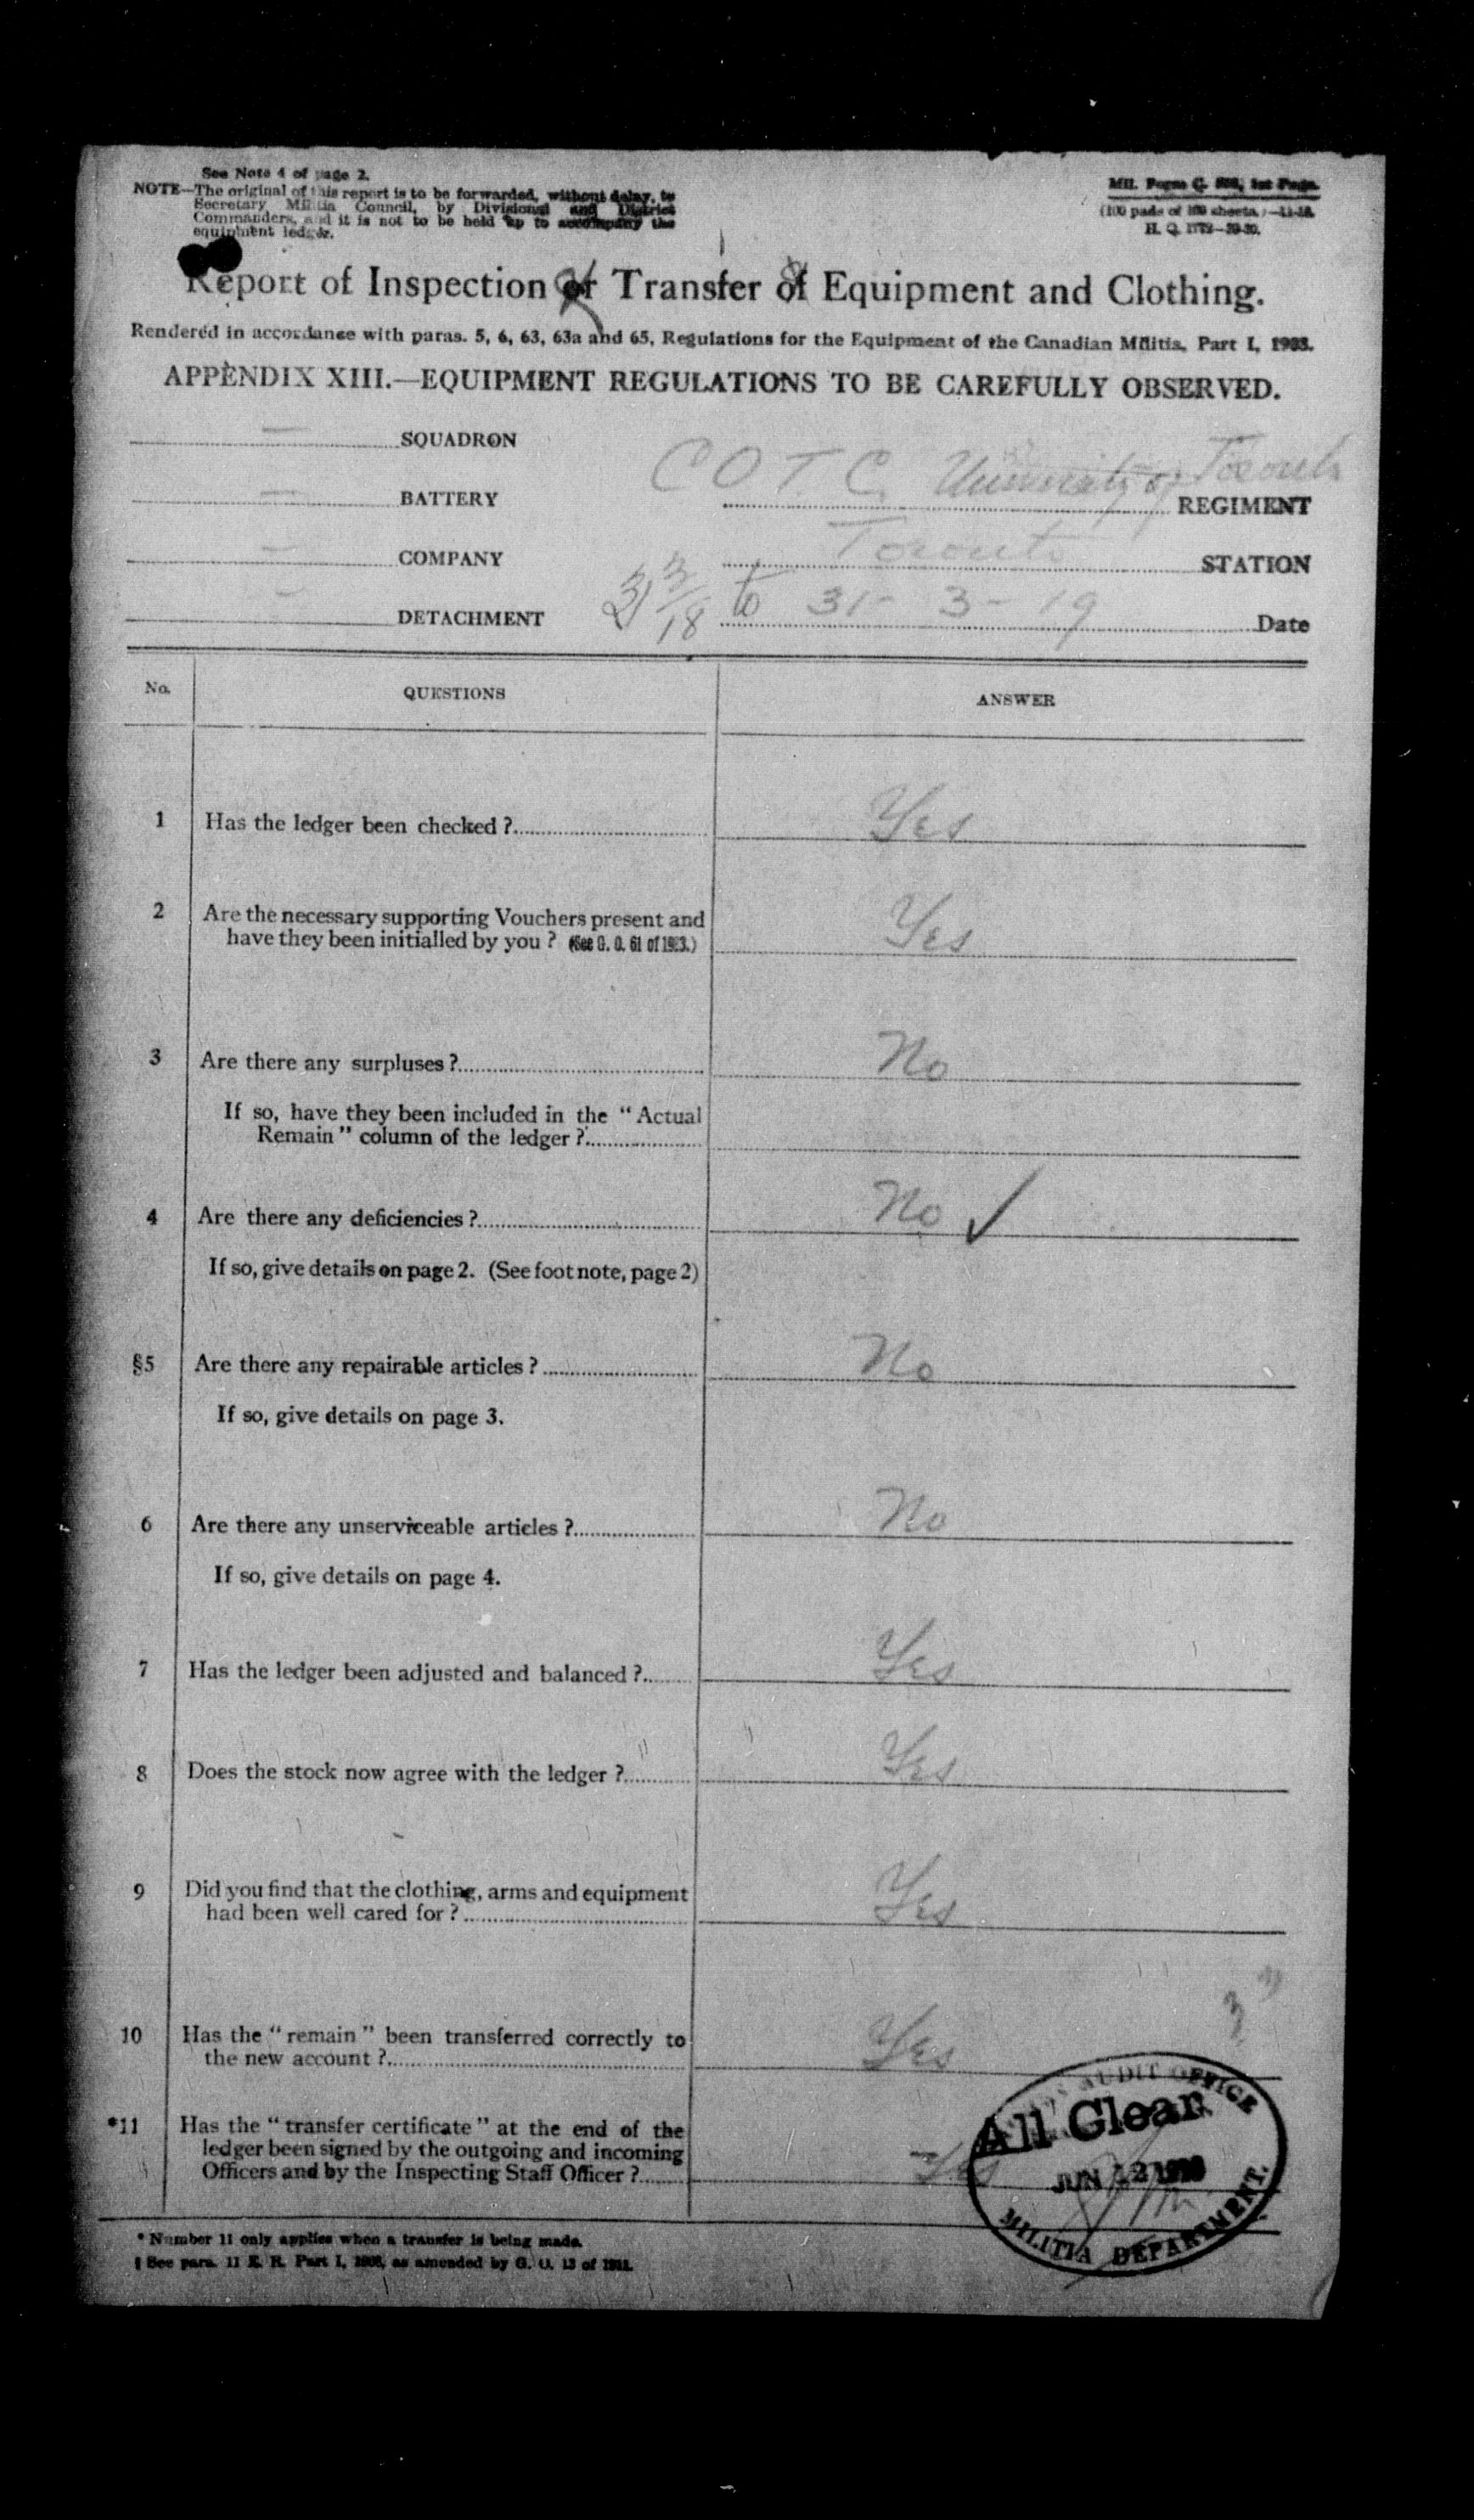 See Note 4 of page 2.
NOTE—The original of this report is to be forwarded, without delay, to
Secretary Militia Council, by Divisional and District
Commanders, and it is not to be held up to accompany the
equipment ledger.
Mil. Form G. 1st Page.
(100 pads of 100 sheets.)—11-18.
H. Q. 1772—39-20.
Report of Inspection or Transfer of Equipment and Clothing.
Rendered in accordance with paras. 5, 6, 63, 63a and 65, Regulations for the Equipment of the Canadian Militia, Part I,
APPENDIX XIII.—EQUIPMENT REGULATIONS TO BE CAREFULLY OBSERVED.
— SQUADRON
— BATTERY
C O T C. University of Toronto REGIMENT
— COMPANY
Toronto STATION
— DETACHMENT
31 3/18 to 31 - 3 - 19 Date
No. QUESTIONS ANSWER
1 Has the ledger been checked ? Yes
2 Are the necessary supporting Vouchers present and
have they been initialled by you ? (See G. O. 61 of 1913.) Yes
3 Are there any surpluses ? No
If so, have they been included in the “ Actual
Remain ” column of the ledger ?
4 Are there any deficiencies ? No ✓
If so, give details on page 2. (See foot note, page 2)
§5 Are there any repairable articles ? No
If so, give details on page 3.
6 Are there any unserviceable articles ? No
If so, give details on page 4.
7 Has the ledger been adjusted and balanced ? Yes
8 Does the stock now agree with the ledger ? Yes
9 Did you find that the clothing, arms and equipment
had been well cared for ? Yes
10 Has the “ remain ” been transferred correctly to
the new account ? Yes
*11 Has the “ transfer certificate ” at the end of the
ledger been signed by the outgoing and incoming
Officers and by the Inspecting Staff Officer ? Yes
AUDIT OFFICE
All Clear
JUN 12
MILITIA DEPARTMENT.
* Number 11 only applies when a transfer is being made.
§ See para. 11 E. R. Part I, as amended by G. O. 13 of 1911.